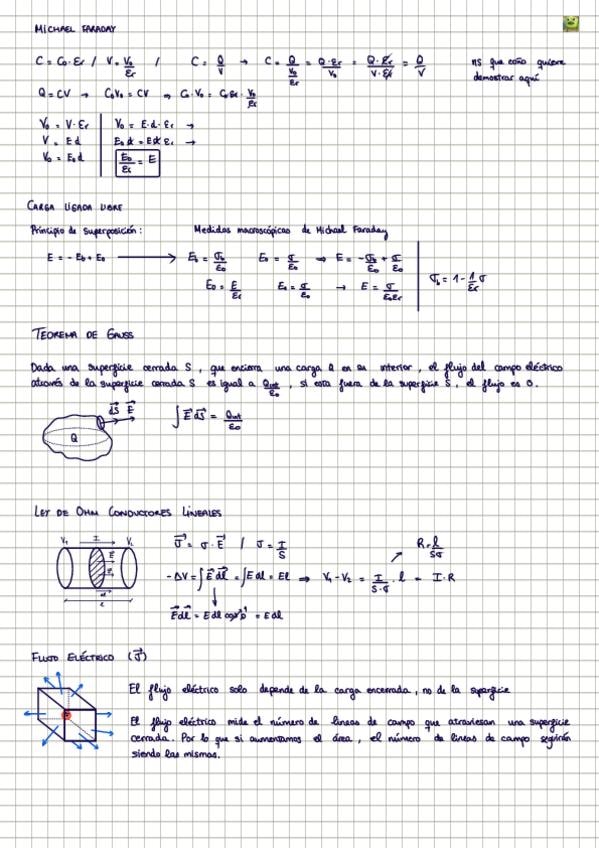 MICHAEL FARADAY
C = C₀·εr / V = V₀/εr / C = Q/V → C = Q/(V₀/εr) = Q·εr/V₀ = Q·εr/V·εr = Q/V
ns que coño quiere
demostrar aquí
Q = CV → C₀V₀ = CV ⇒ C₀·V₀ = C₀εr · V₀/εr
V₀ = V·εr | V₀ = E·d·εr →
V = Ed | E₀d = Edεr →
V₀ = E₀d | E₀/εr = E
CARGA LIGADA LIBRE
Principio de Superposición: Medidas macroscópicas de Michael Faraday
E = -Eb + E₀ → Eb = σb/ε₀ E₀ = σ/ε₀ ⇒ E = -σb/ε₀ + σ/ε₀
E₀ = E/εr E₀ = σ/ε₀ → E = σ/ε₀εr | σb = 1 - 1/εr σ
TEOREMA DE GAUSS
Dada una superficie cerrada S, que encierra una carga Q en su interior, el flujo del campo eléctrico
através de la superficie cerrada S es igual a Qint/ε₀, si esta fuera de la superficie S, el flujo es 0.
dS E
Q
∫ E dS = Qint/ε₀
LEY DE OHM CONDUCTORES LINEALES
V₁ I V₂
J = σ·E / J = I/S
R = l/Sσ
-ΔV = ∫ E dl = ∫ E dl = El ⇒ V₁ - V₂ = I/S·σ · l = I·R
E dl = E dl cos 0 1 = E dl
FLUJO ELÉCTRICO (J)
El flujo eléctrico solo depende de la carga encerrada, no de la superficie
El flujo eléctrico mide el número de líneas de campo que atraviesan una superficie
cerrada. Por lo que si aumentamos el área, el número de líneas de campo seguirán
siendo las mismas.